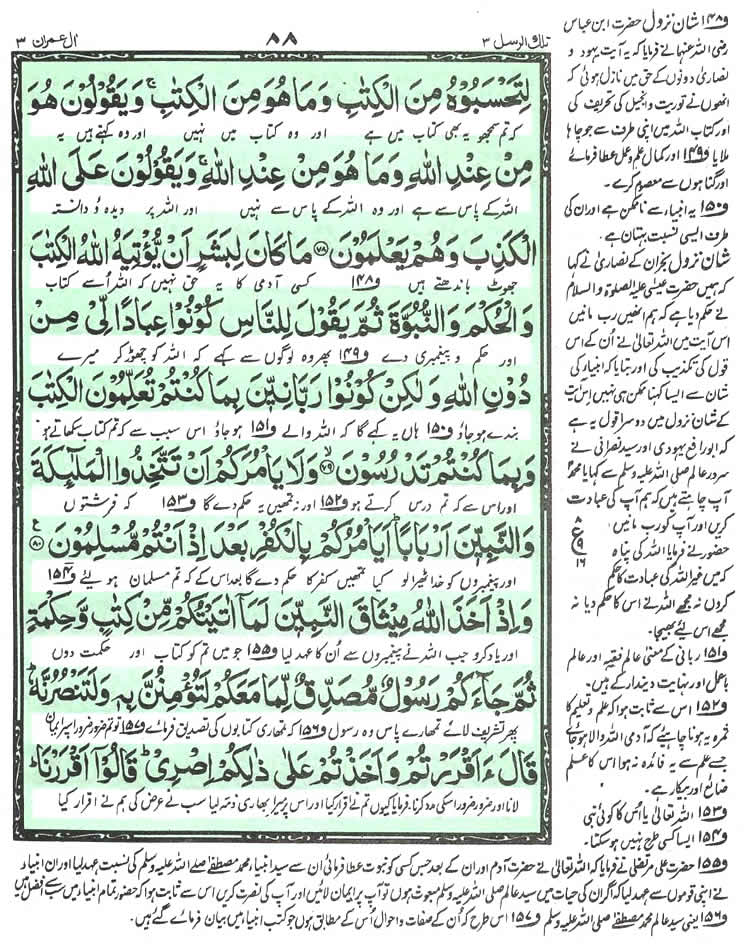 تلك الرسل ٣
٨٨
ال عمران ٣
لِتَحْسَبُوْهُ مِنَ الْكِتٰبِ وَمَا هُوَ مِنَ الْكِتٰبِ ۚ وَيَقُوْلُوْنَ هُوَ
کہ تم سمجھو یہ بھی کتاب میں ہے اور وہ کتاب میں نہیں اور وہ کہتے ہیں یہ
مِنْ عِنْدِ اللّٰهِ وَمَا هُوَ مِنْ عِنْدِ اللّٰهِ ۚ وَيَقُوْلُوْنَ عَلَى اللّٰهِ
اللہ کے پاس سے ہے اور وہ اللہ کے پاس سے نہیں اور اللہ پر دیدہ و دانستہ
الْكَذِبَ وَهُمْ يَعْلَمُوْنَ ﴿٧٨﴾ مَا كَانَ لِبَشَرٍ اَنْ يُّؤْتِيَهُ اللّٰهُ الْكِتٰبَ
جھوٹ باندھتے ہیں ف١٤٨ کسی آدمی کا یہ حق نہیں کہ اللہ اُسے کتاب
وَالْحُكْمَ وَالنُّبُوَّةَ ثُمَّ يَقُوْلَ لِلنَّاسِ كُوْنُوْا عِبَادًا لِّيْ مِنْ
اور حکم و پیغمبری دے ف١٤٩ پھر وہ لوگوں سے کہے کہ اللہ کو چھوڑ کر میرے
دُوْنِ اللّٰهِ وَلٰكِنْ كُوْنُوْا رَبَّانِيّٖنَ بِمَا كُنْتُمْ تُعَلِّمُوْنَ الْكِتٰبَ
بندے ہو جاؤ ف١٥٠ ہاں یہ کہے گا کہ اللہ والے ف١٥١ ہو جاؤ اس سبب سے کہ تم کتاب سکھاتے ہو
وَبِمَا كُنْتُمْ تَدْرُسُوْنَ ﴿٧٩﴾ وَلَا يَاْمُرَكُمْ اَنْ تَتَّخِذُوا الْمَلٰٓئِكَةَ
اور اس سے کہ تم درس کرتے ہو ف١٥٢ اور نہ تمھیں یہ حکم دے گا ف١٥٣ کہ فرشتوں
وَالنَّبِيّٖنَ اَرْبَابًا ؕ اَيَاْمُرُكُمْ بِالْكُفْرِ بَعْدَ اِذْ اَنْتُمْ مُّسْلِمُوْنَ ﴿٨٠﴾ ع
اور پیغمبروں کو خدا ٹھہرا لو کیا تمھیں کفر کا حکم دے گا بعد اس کے کہ تم مسلمان ہو لیے ف١٥٤
وَاِذْ اَخَذَ اللّٰهُ مِيْثَاقَ النَّبِيّٖنَ لَمَآ اٰتَيْتُكُمْ مِّنْ كِتٰبٍ وَّحِكْمَةٍ
اور یاد کرو جب اللہ نے پیغمبروں سے اُن کا عہد لیا ف١٥٥ جو میں تم کو کتاب اور حکمت دوں
ثُمَّ جَآءَكُمْ رَسُوْلٌ مُّصَدِّقٌ لِّمَا مَعَكُمْ لَتُؤْمِنُنَّ بِهٖ وَلَتَنْصُرُنَّهٗ ؕ
پھر تشریف لائے تمھارے پاس وہ رسول ف١٥٦ کہ تمھاری کتابوں کی تصدیق فرمائے ف١٥٧ تو تم ضرور ضرور اس پر ایمان
قَالَ ءَاَقْرَرْتُمْ وَاَخَذْتُمْ عَلٰى ذٰلِكُمْ اِصْرِيْ ؕ قَالُوْٓا اَقْرَرْنَا ؕ
لانا اور ضرور ضرور اسکی مدد کرنا۔ فرمایا کیوں تم نے اقرار کیا اور اس پر میرا بھاری ذمہ لیا سب نے عرض کی ہم نے اقرار کیا
ف١٤٨ شان نزول حضرت ابن عباس
رضی اللہ عنہما نے فرمایا کہ یہ آیت یہود و
نصاریٰ دونوں کے حق میں نازل ہوئی کہ
انھوں نے توریت و انجیل کی تحریف کی
اور کتاب اللہ میں اپنی طرف سے جو چاہا
ملایا ف١٤٩ اور کمال علم و عمل عطا فرمائے
اور گناہوں سے معصوم کرے۔
ف١٥٠ یہ انبیاء سے ناممکن ہے اور ان کی
طرف ایسی نسبت بہتان ہے۔
شان نزول نجران کے نصاریٰ نے کہا
کہ ہمیں حضرت عیسیٰ علیہ الصلوٰۃ والسلام
نے حکم دیا ہے کہ ہم انھیں رب مانیں
اس آیت میں اللہ تعالیٰ نے اُن کے اس
قول کی تکذیب کی اور بتایا کہ انبیاء کی
شان سے ایسا کہنا ممکن ہی نہیں اس آیت
کے شان نزول میں دوسرا قول یہ ہے
کہ ابو رافع یہودی اور سید نصرانی نے
سرور عالم صلی اللہ علیہ وسلم سے کہا یا محمد
آپ چاہتے ہیں کہ ہم آپ کی عبادت
کریں اور آپ کو رب مانیں
حضور نے فرمایا اللہ کی پناہ
کہ میں غیر اللہ کی عبادت کا حکم
کروں نہ مجھے اللہ نے اس کا حکم دیا نہ
مجھے اس لیے بھیجا۔
٨
ع
٩
١٦
ف١٥١ ربانی کے معنی عالم فقیہ اور عالم
باعمل اور نہایت دیندار کے ہیں۔
ف١٥٢ اس سے ثابت ہوا کہ علم و تعلیم کا
ثمرہ یہ ہونا چاہیے کہ آدمی اللہ والا ہو جائے
جسے علم سے یہ فائدہ نہ ہوا اس کا علم
ضائع اور بیکار ہے۔
ف١٥٣ اللہ تعالیٰ یا اُس کا کوئی نبی
ف١٥٤ ایسا کسی طرح نہیں ہو سکتا۔
ف١٥٥ حضرت علی مرتضیٰ نے فرمایا کہ اللہ تعالیٰ نے حضرت آدم اور ان کے بعد جس کسی کو نبوت عطا فرمائی ان سے سید انبیاء محمد مصطفےٰ صلے اللہ علیہ وسلم کی نسبت عہد لیا اور ان انبیاء
نے اپنی قوموں سے عہد لیا کہ اگر ان کی حیات میں سید عالم صلی اللہ علیہ وسلم مبعوث ہوں تو آپ پر ایمان لائیں اور آپ کی نصرت کریں اس سے ثابت ہوا کہ حضور تمام انبیاء میں سب سے افضل ہیں
ف١٥٦ یعنی سید عالم محمد مصطفےٰ صلی اللہ علیہ وسلم ف١٥٧ اس طرح کہ اُن کے صفات و احوال اُس کے مطابق ہوں جو کتب انبیاء میں بیان فرمائے گئے ہیں۔